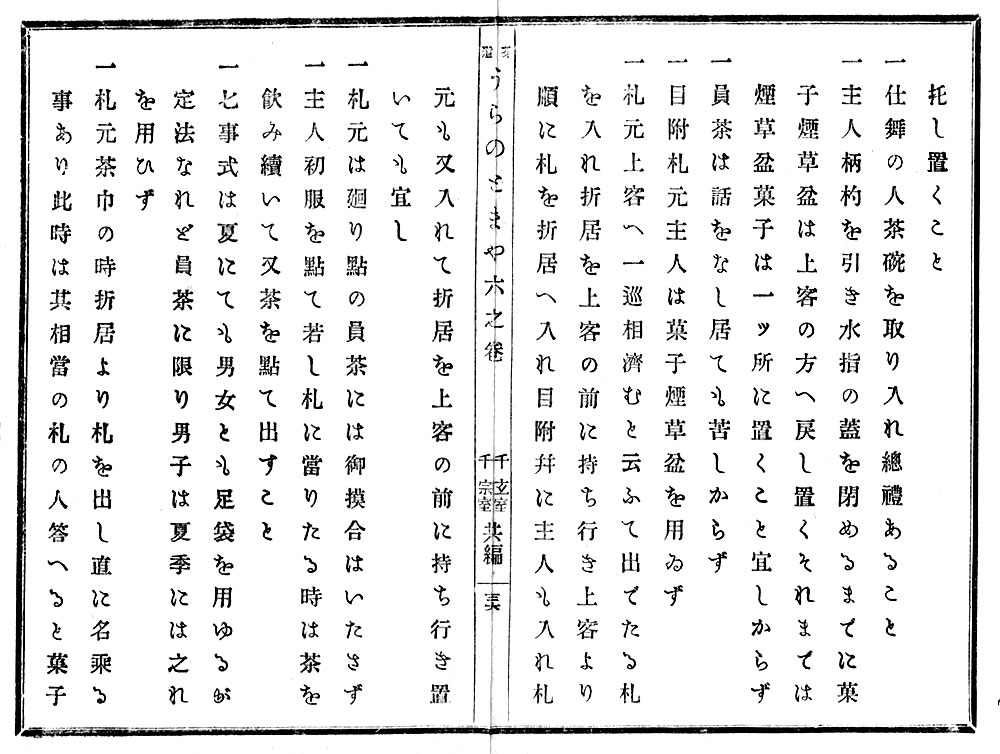 托し置くこと
一仕舞の人茶碗を取り入れ總禮あること
一主人柄杓を引き水指の蓋を閉めるまでに菓
子煙草盆は上客の方へ戻し置くそれまでは
煙草盆菓子は一ッ所に置くこと宜しからず
一員茶は話をなし居ても苦しからず
一目附札元主人は菓子煙草盆を用ゐず
一札元上客へ一巡相濟むと云ふて出でたる札
を入れ折居を上客の前に持ち行き上客より
順に札を折居へ入れ目附幷に主人も入れ札
うらのとまや六之卷
千玄室
千宗室
共編
三天
元も又入れて折居を上客の前に持ち行き置
いても宜し
一札元は廻り點の員茶には御摸合はいたさず
一主人初服を點て若し札に當りたる時は茶を
飲み續いて又茶を點て出すこと
一七事式は夏にても男女とも足袋を用ゆるが
定法なれど員茶に限り男子は夏季には之れ
を用ひず
一札元茶巾の時折居より札を出し直に名乘る
事あり此時は其相當の札の人答へると菓子